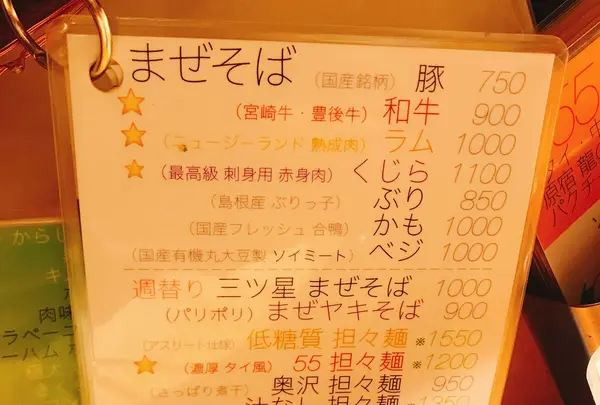 まぜそば (国産銘柄) 豚 750
(宮崎牛・豊後牛) 和牛 900
(ニュージーランド 熟成肉) ラム 1000
(最高級 刺身用 赤身肉) くじら 1100
(島根産 ぶりっ子) ぶり 850
(国産フレッシュ 合鴨) かも 1000
(国産有機丸大豆製 ソイミート) ベジ 1000
週替り 三ツ星 まぜそば 1000
(パリポリ) まぜヤキそば 900
(アスリート仕様) 低糖質 担々麺 ※1550
(濃厚 タイ風) 55 担々麺 ※1200
(さっぱり煮干) 奥沢 担々麺 950
汁なし 担々麺 ※1350
からし
肉味
ラペーニ
ーハム
55
原宿
パクチ